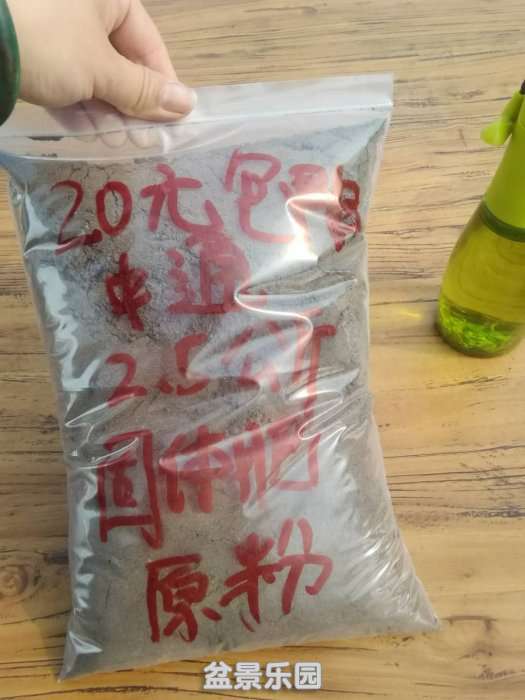 20元包邮
中通
2.5公斤
固体肥
原粉
盆景乐园